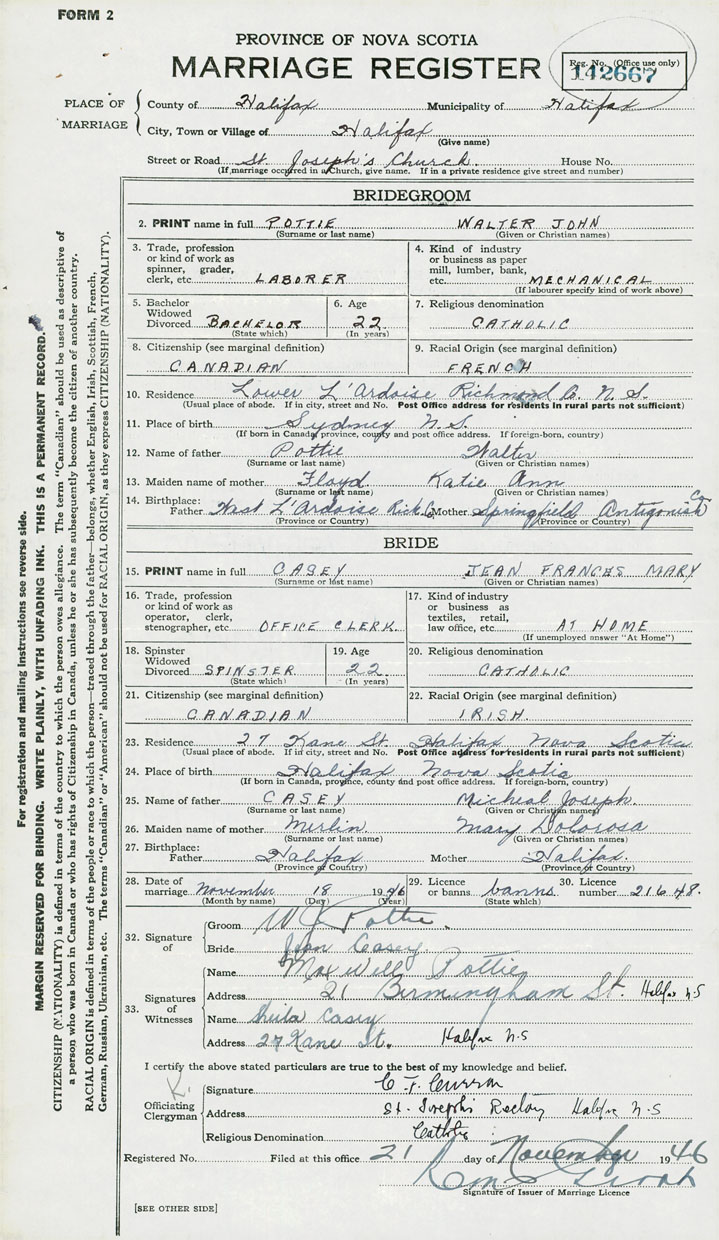 FORM 2
PROVINCE OF NOVA SCOTIA
MARRIAGE REGISTER
Reg. No. (Office use only)
142667
PLACE OF MARRIAGE
County of Halifax Municipality of Halifax
City, Town or Village of Halifax
(Give name)
Street or Road St. Joseph's Church. House No.
(If marriage occurred in a Church, give name. If in a private residence give street and number)
BRIDEGROOM
2. PRINT name in full POTTIE WALTER JOHN
(Surname or last name) (Given or Christian names)
3. Trade, profession or kind of work as spinner, grader, clerk, etc. LABORER
4. Kind of industry or business as paper mill, lumber, bank, etc. MECHANICAL
(If labourer specify kind of work above)
5. Bachelor Widowed Divorced BACHELOR
(State which)
6. Age 22
(In years)
7. Religious denomination
CATHOLIC
8. Citizenship (see marginal definition)
CANADIAN
9. Racial Origin (see marginal definition)
FRENCH
10. Residence Lower L'Ardoise Richmond Co. N.S.
(Usual place of abode. If in city, street and No. Post Office address for residents in rural parts not sufficient)
11. Place of birth Sydney N.S.
(If born in Canada, province, county and post office address. If foreign-born, country)
12. Name of father Pottie Walter
(Surname or last name) (Given or Christian names)
13. Maiden name of mother Floyd Katie Ann
(Surname or last name) (Given or Christian names)
14. Birthplace:
Father West L'Ardoise Rich. Co. Mother Springfield Antigonish Co
(Province or Country) (Province or Country)
BRIDE
15. PRINT name in full CASEY JEAN FRANCES MARY
(Surname or last name) (Given or Christian names)
16. Trade, profession or kind of work as operator, clerk, stenographer, etc. OFFICE CLERK
17. Kind of industry or business as textiles, retail, law office, etc. AT HOME
(If unemployed answer "At Home")
18. Spinster Widowed Divorced SPINSTER
(State which)
19. Age 22
(In years)
20. Religious denomination
CATHOLIC
21. Citizenship (see marginal definition)
CANADIAN
22. Racial Origin (see marginal definition)
IRISH.
23. Residence 27 Kane St. Halifax Nova Scotia
(Usual place of abode. If in city, street and No. Post Office address for residents in rural parts not sufficient)
24. Place of birth Halifax Nova Scotia
(If born in Canada, province, county and post office address. If foreign-born, country)
25. Name of father CASEY Micheal Joseph.
(Surname or last name) (Given or Christian names)
26. Maiden name of mother Merlin Mary Dolorosa
(Surname or last name) (Given or Christian names)
27. Birthplace:
Father Halifax Mother Halifax.
(Province or Country) (Province or Country)
28. Date of marriage November 18 1946
(Month by name) (Day) (Year)
29. Licence or banns banns
(State which)
30. Licence number 21648.
32. Signature of
Groom W J Pottie.
Bride Jean Casey
33. Signatures of Witnesses
Name Maxwell Pottie
Address 21 Birmingham St. Halifax N.S
Name Sheila Casey
Address 27 Kane St. Halifax N.S
I certify the above stated particulars are true to the best of my knowledge and belief.
Officiating Clergyman
Signature C. F. Curran
Address St. Joseph's Rectory Halifax N.S
Religious Denomination Catholic
Registered No. Filed at this office 21 day of November 1946
Signature of Issuer of Marriage Licence
[SEE OTHER SIDE]
For registration and mailing instructions see reverse side.
MARGIN RESERVED FOR BINDING. WRITE PLAINLY, WITH UNFADING INK. THIS IS A PERMANENT RECORD.
CITIZENSHIP (NATIONALITY) is defined in terms of the country to which the person owes allegiance. The term "Canadian" should be used as descriptive of
a person who was born in Canada or who has rights of Citizenship in Canada, unless he or she has subsequently become the citizen of another country.
RACIAL ORIGIN is defined in terms of the people or race to which the person—traced through the father—belongs, whether English, Irish, Scottish, French,
German, Russian, Ukrainian, etc. The terms "Canadian" or "American" should not be used for RACIAL ORIGIN, as they express CITIZENSHIP (NATIONALITY).